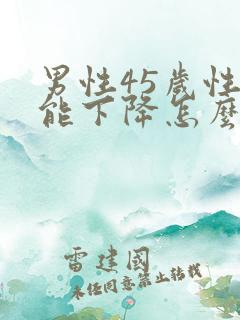 男性45歲性
能下降怎麼
雷建國
未经同意禁止转载